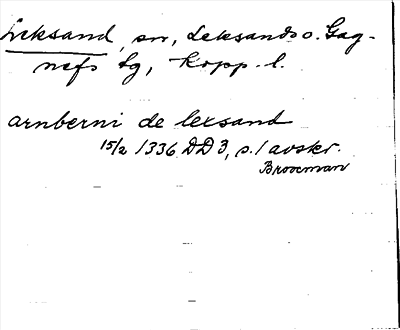 Leksand, sn, Leksands o. Gag-
nefs tg, Kopp. l.
arnberni de lexsand
15/2 1336 DD 3, s. 1 avskr.
Broocman